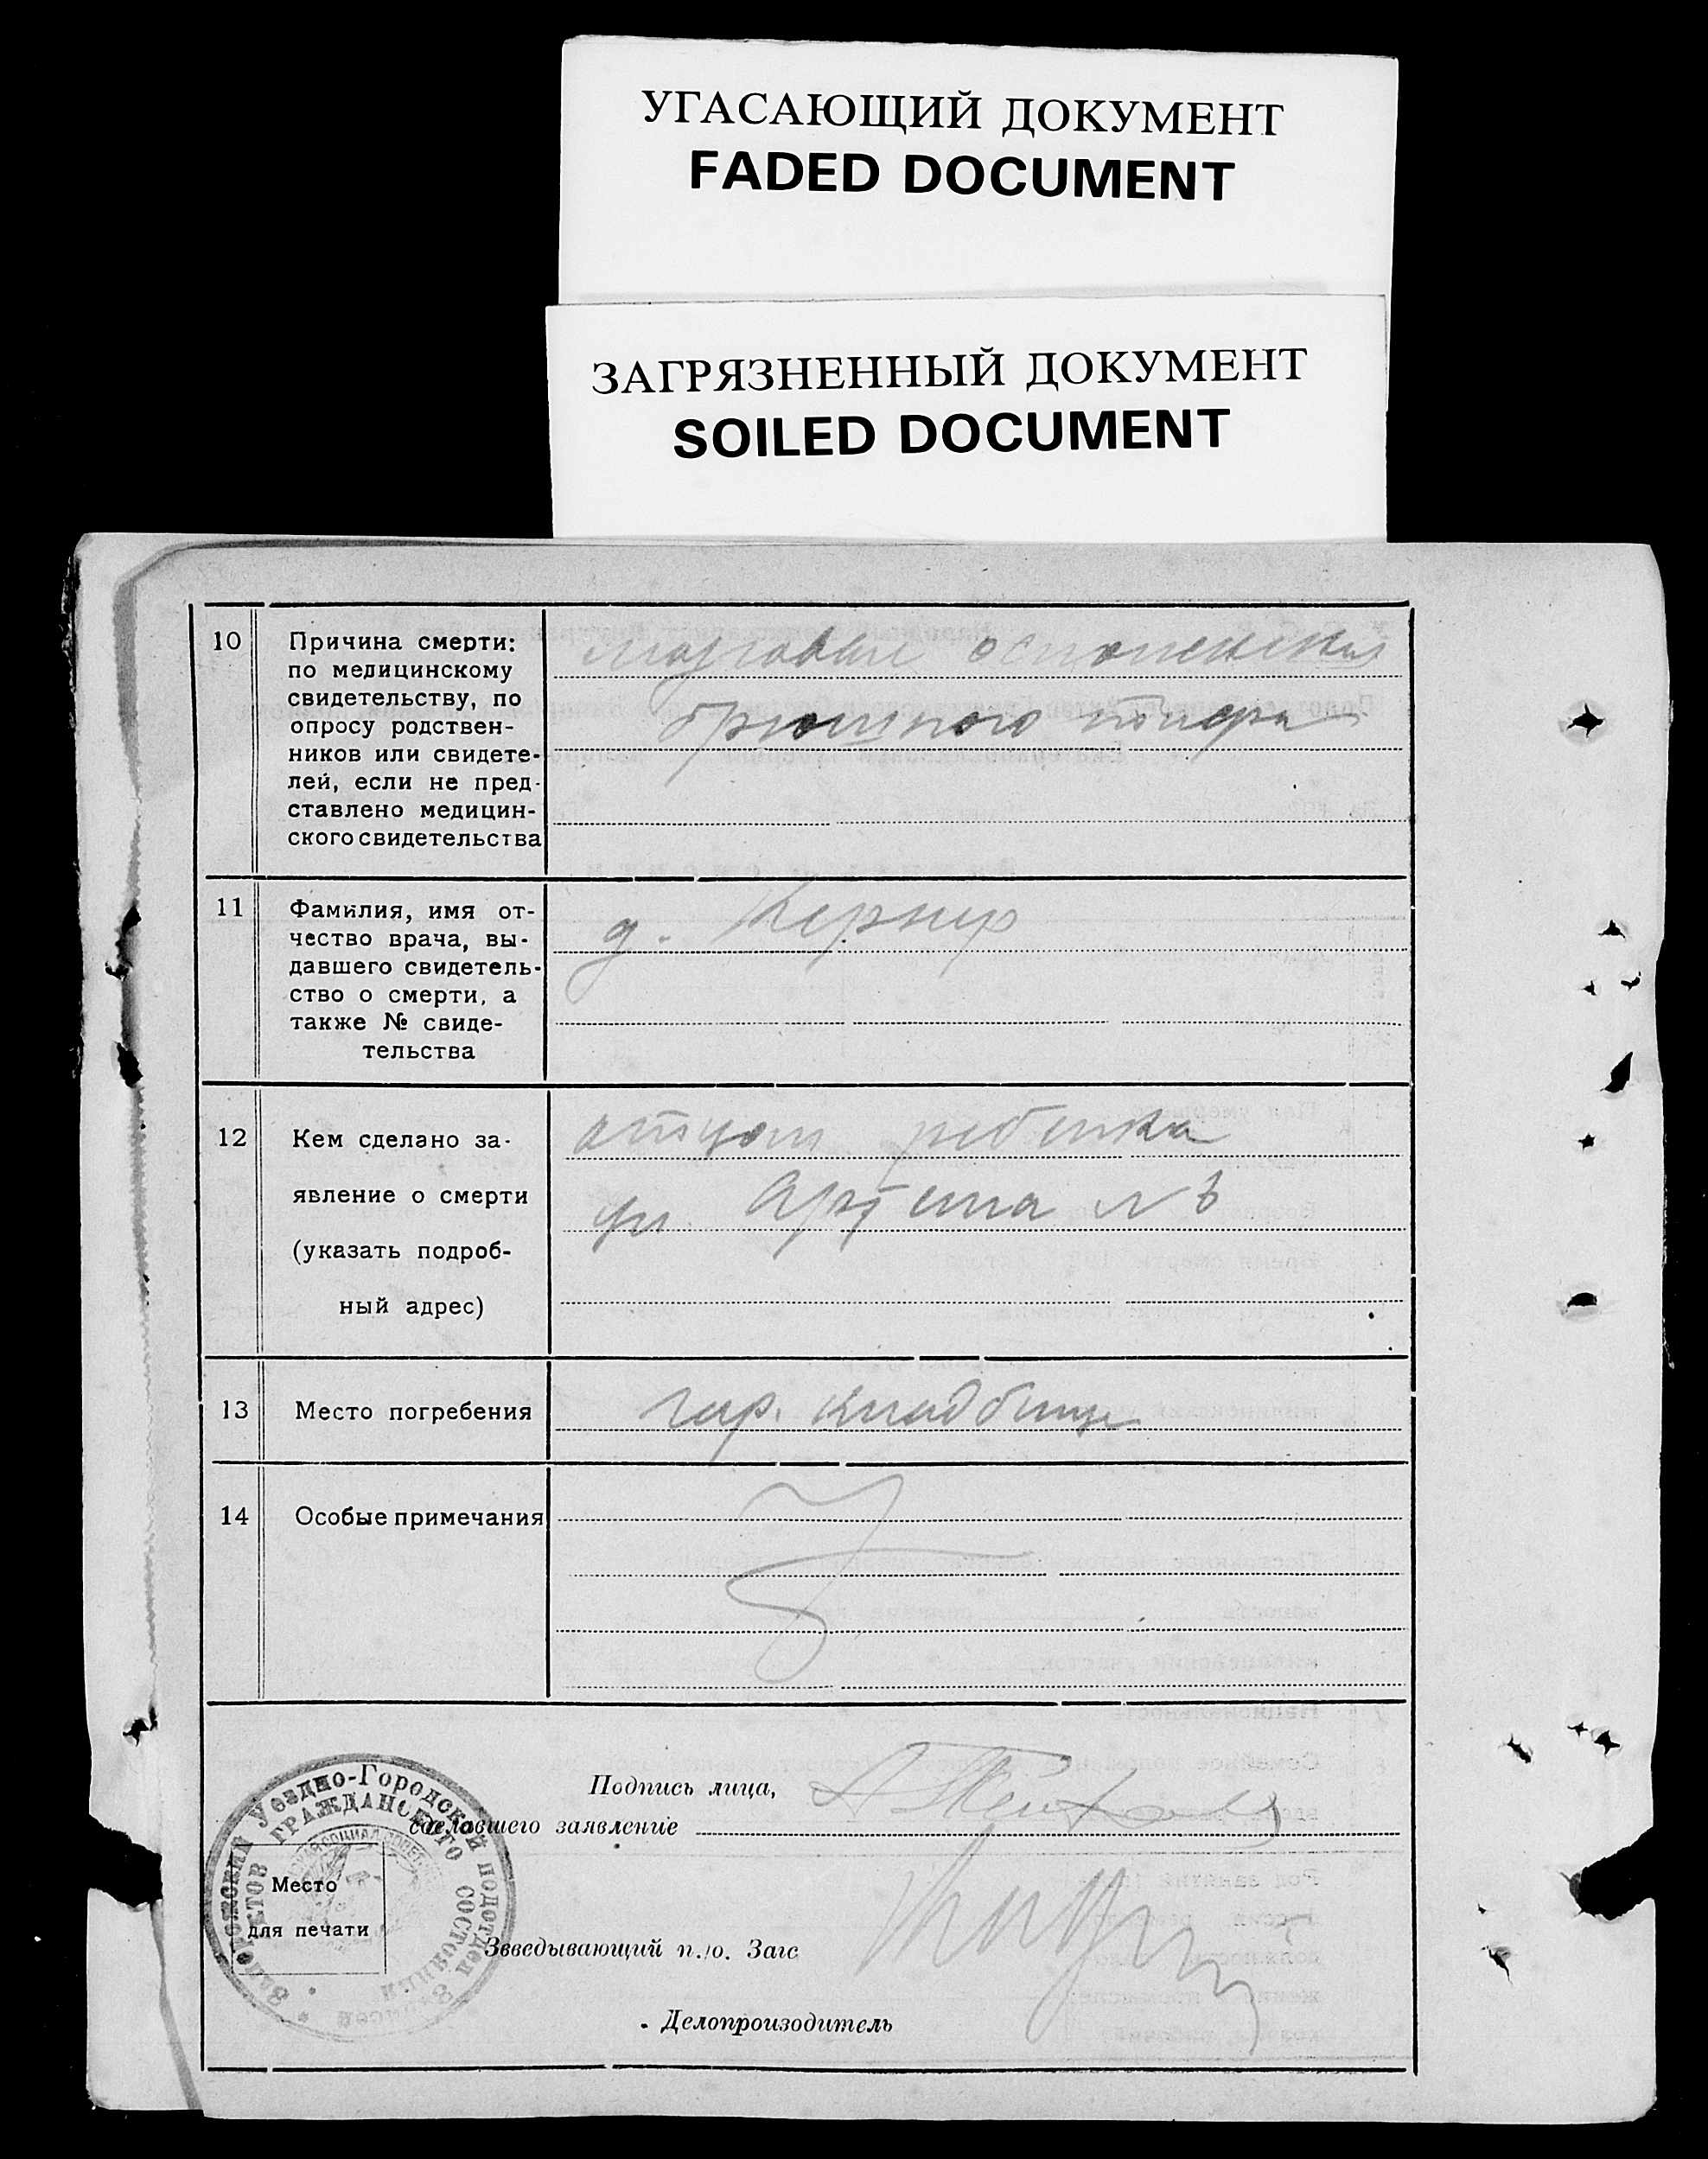 УГАСАЮЩИЙ ДОКУМЕНТ
FADED DOCUMENT
ЗАГРЯЗНЕННЫЙ ДОКУМЕНТ
SOILED DOCUMENT
10
Причина смерти:
по медицинскому
свидетельству, по
опросу родствен-
ников или свидете-
лей, если не пред-
ставлено медицин-
ского свидетельства
мозговые осложнения
брюшного тифа
11
Фамилия, имя от-
чество врача, вы-
давшего свидетель-
ство о смерти, а
также № свиде-
тельства
д. Кернер
12
Кем сделано за-
явление о смерти
(указать подроб-
ный адрес)
отцом ребенка
ул. Артема №
13
Место погребения
гор. кладбище
14
Особые примечания
Подпись лица,
сделавшего заявление
Место
для печати
Запорожский Уездно-Городской подотдел Записей
ГРАЖДАНСКОГО СОСТОЯНИЯ
Звведывающий п./о. Загс
Делопроизодитель